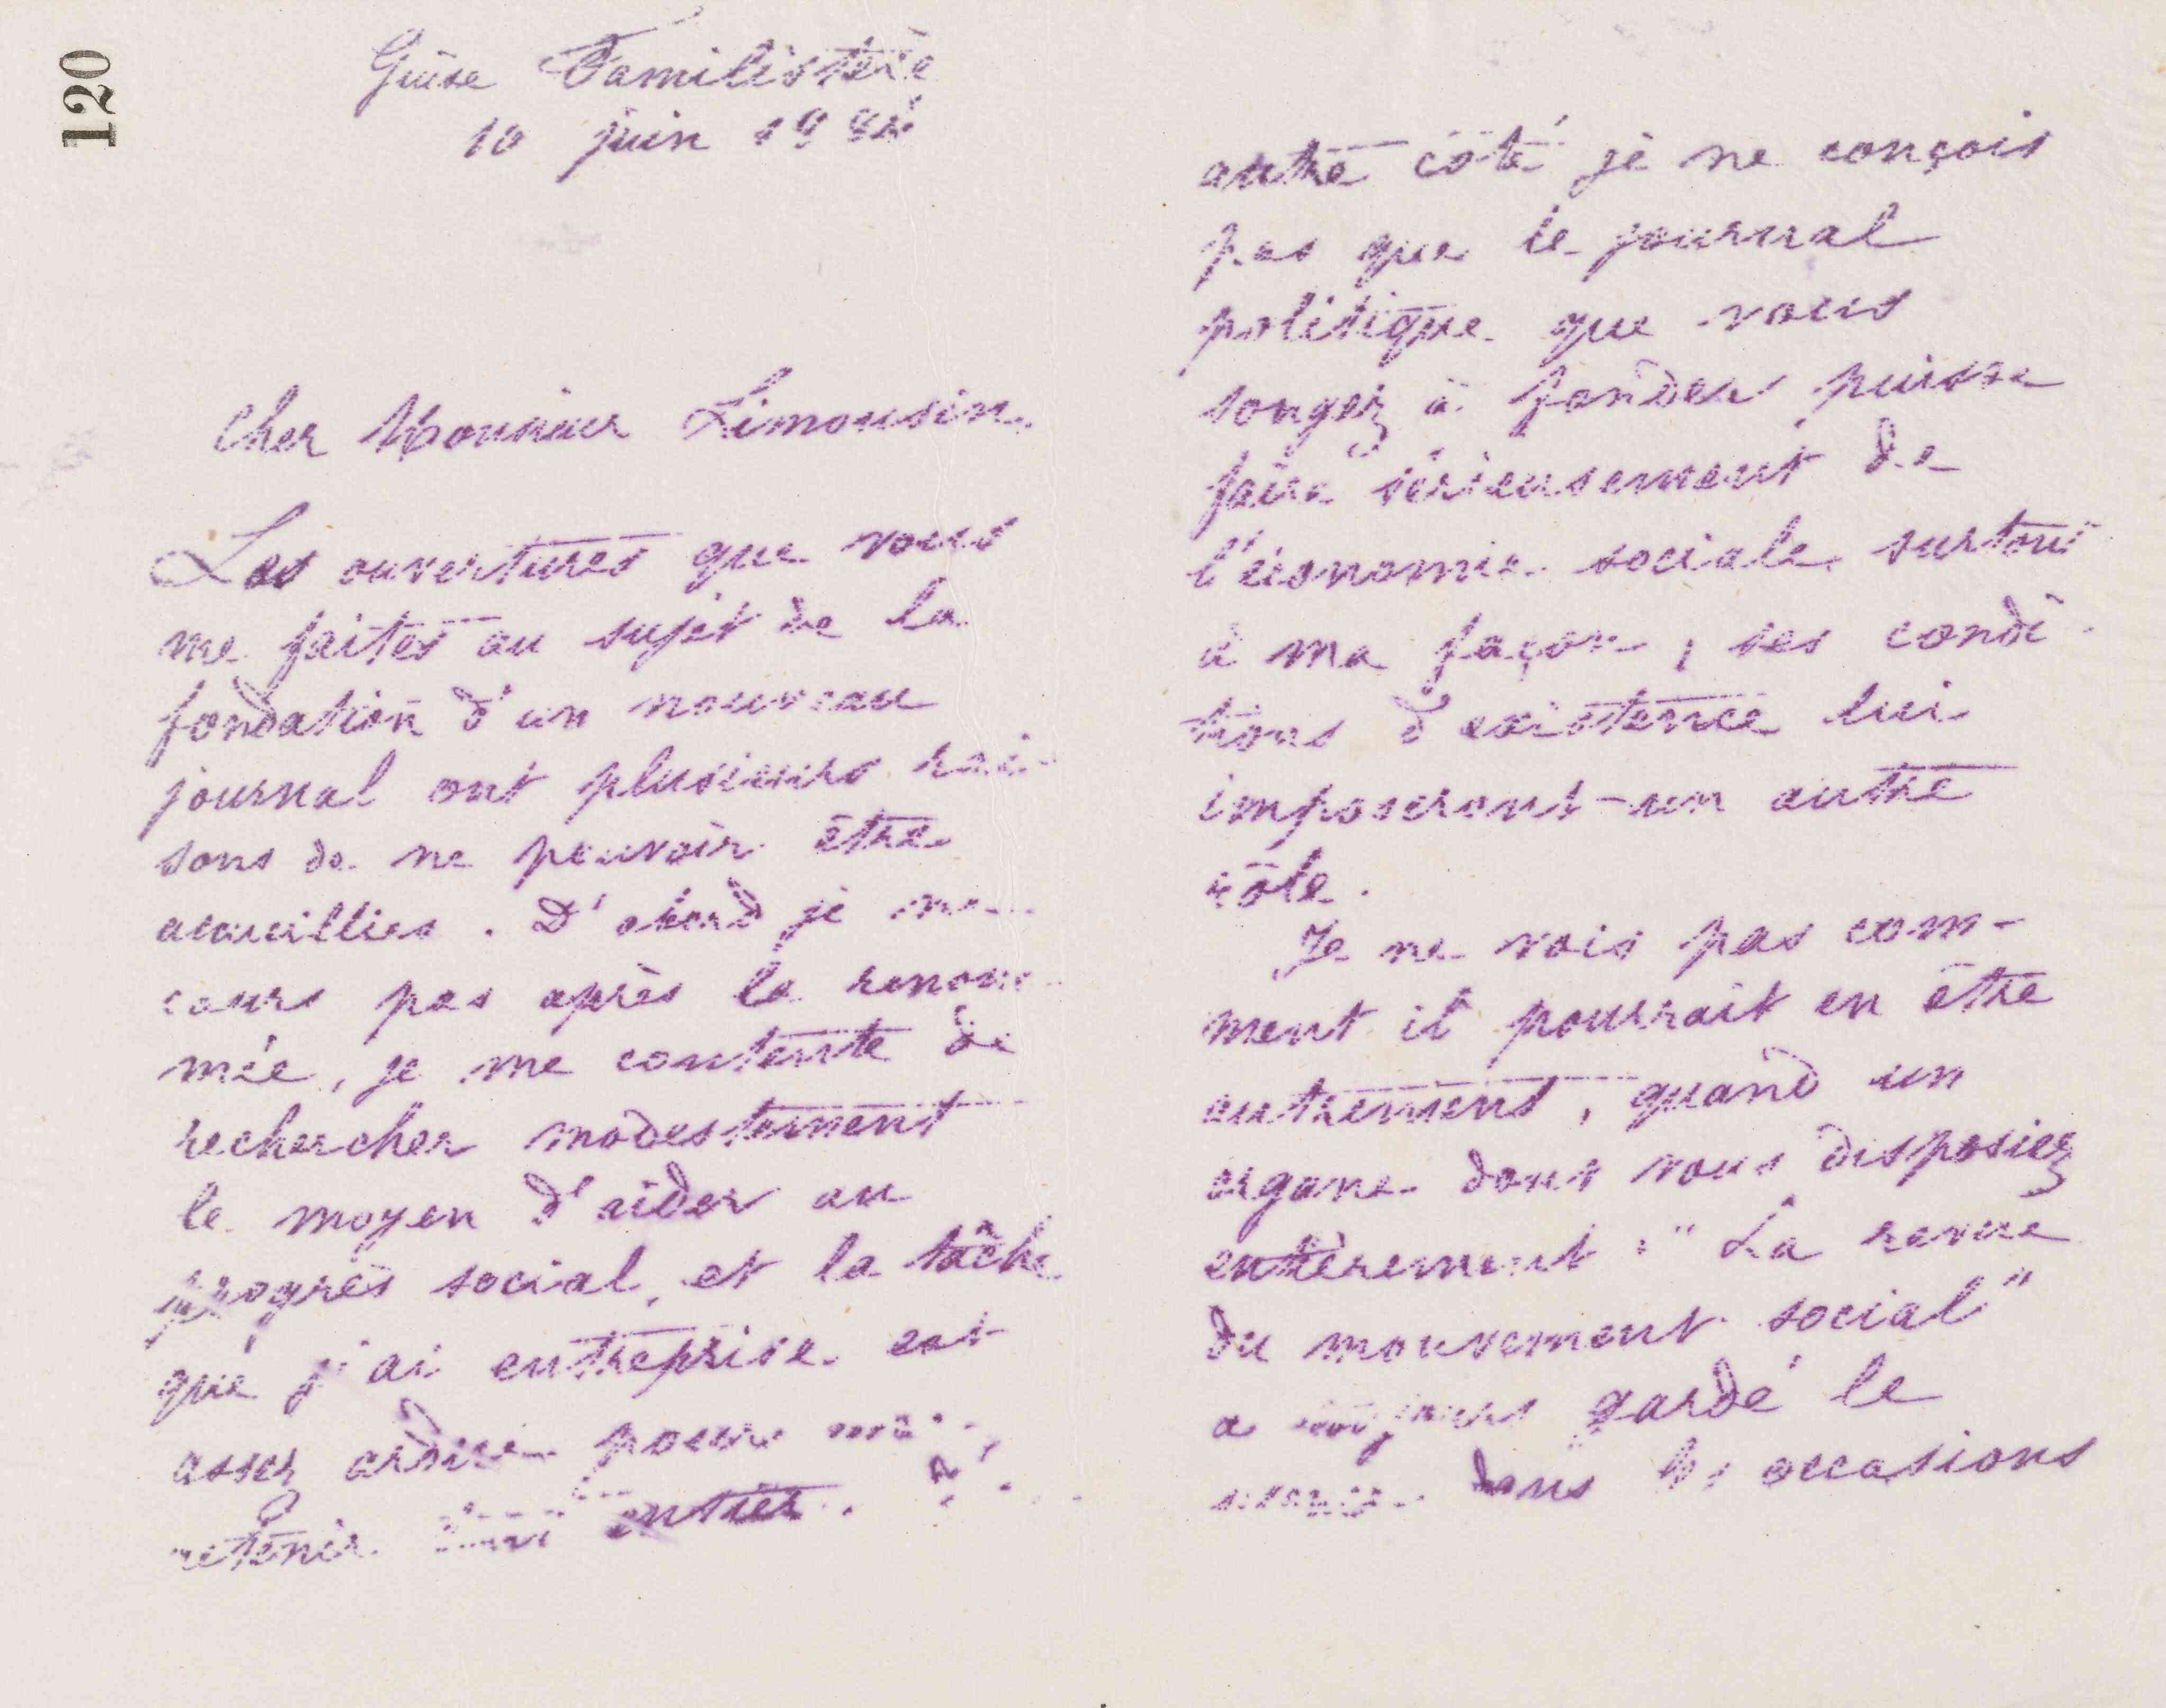 120
Guise Familistère
10 juin
Cher Monsieur Limousin,
Les ouvertures que vous
me faites au sujet de la
fondation d'un nouveau
journal ont plusieurs rai-
sons de ne pouvoir être
accueillies. D'abord je ne
cours pas après la renom-
mée, je me contente de
rechercher modestement
le moyen d'aider au
progrès social, et la tâche
que j'ai entreprise est
assez ardue pour me
retenir tout entier. D'
autre côté je ne conçois
pas que le journal
politique que vous
songez à fonder puisse
faire sérieusement de
l'économie sociale surtout
à ma façon, ses condi-
tions d'existence lui
imposeront un autre
rôle.
Je ne vois pas com-
ment il pourrait en être
autrement, quand un
organe dont vous disposiez
entièrement : "La revue
du mouvement social"
a toujours gardé le
silence dans les occasions